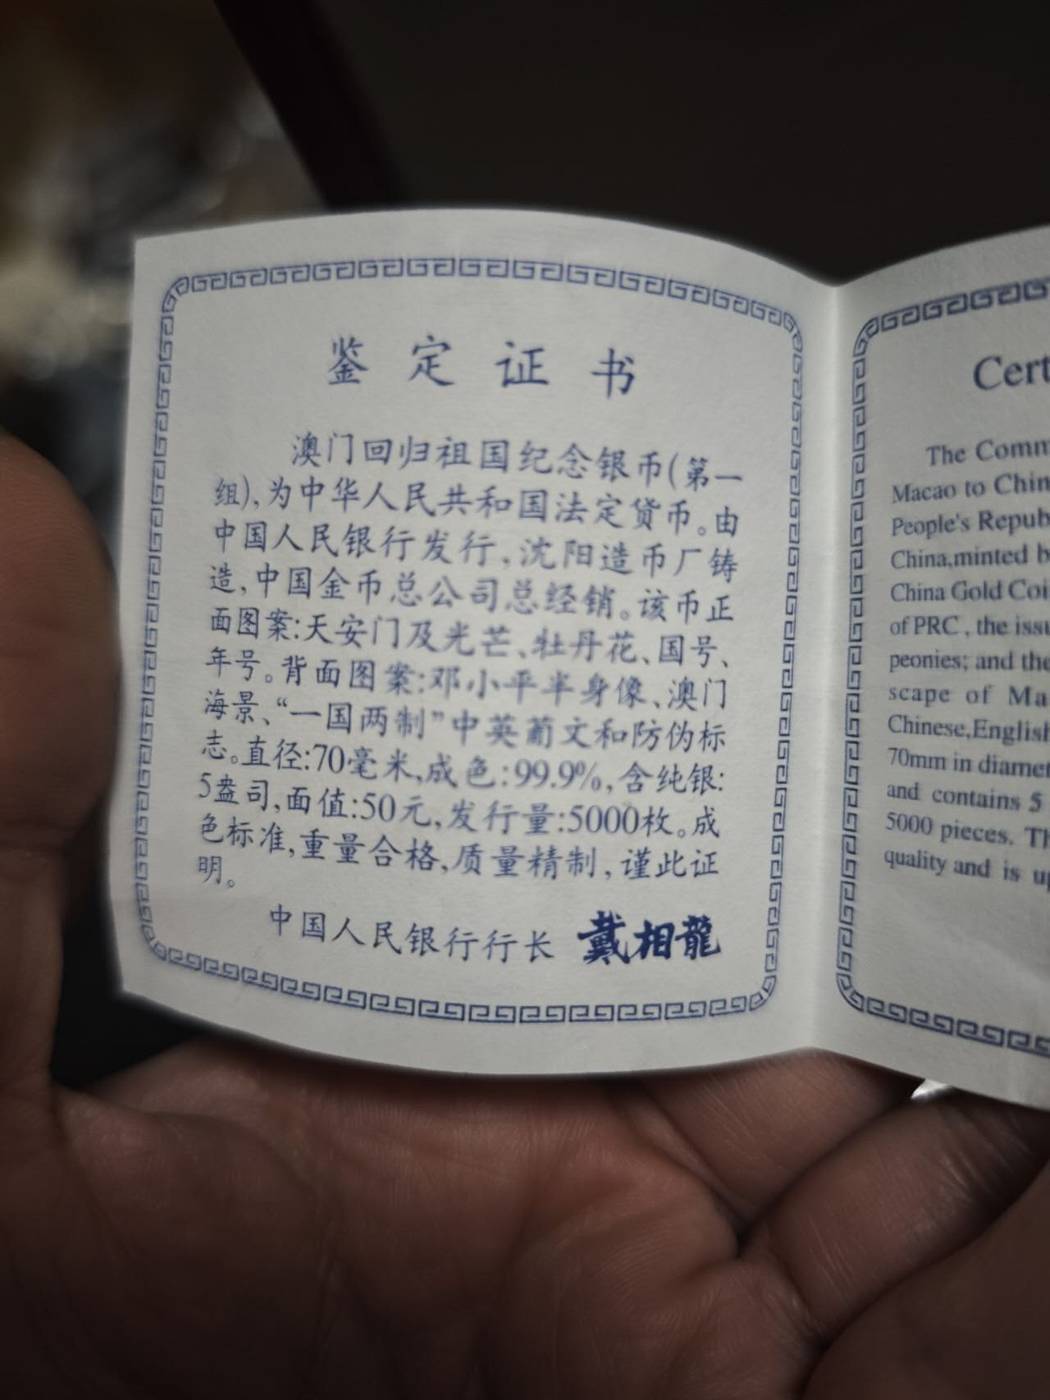 鉴定证书
澳门回归祖国纪念银币(第一
组),为中华人民共和国法定货币。由
中国人民银行发行,沈阳造币厂铸
造,中国金币总公司总经销。该币正
面图案:天安门及光芒、牡丹花、国号、
年号。背面图案:邓小平半身像、澳门
海景、“一国两制”中英葡文和防伪标
志。直径:70毫米,成色:99.9%,含纯银:
5盎司,面值:50元,发行量:5000枚。成
色标准,重量合格,质量精制,谨此证
明。
中国人民银行行长 戴相龍
Cert
The Comm
Macao to Chin
People's Repub
China,minted b
China Gold Coi
of PRC , the issu
peonies; and the
scape of Ma
Chinese,English
70mm in diamet
and contains 5
5000 pieces. Th
quality and is up